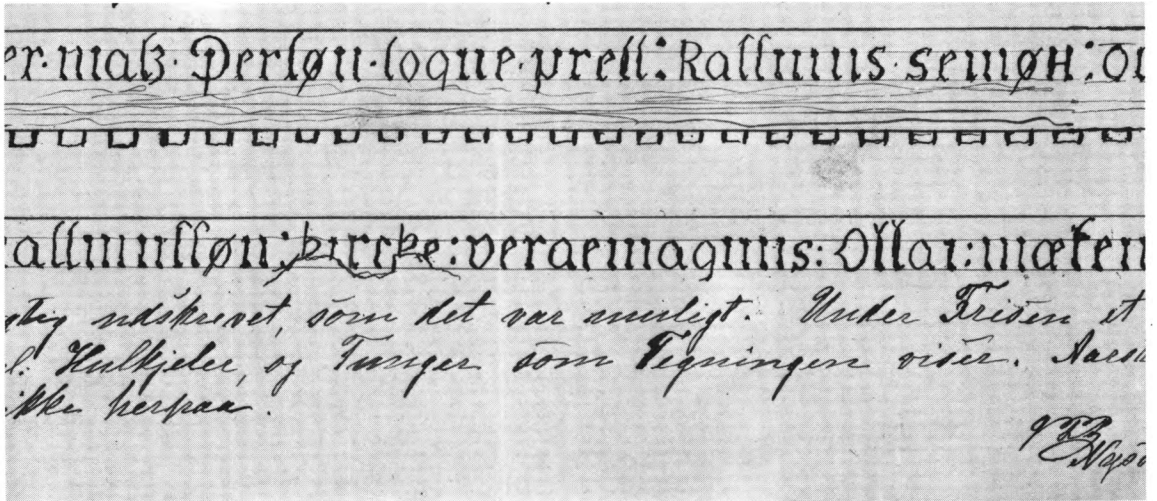 er· mals· Perløn· loqne· prell: Rallmus· semøn: Ol
allmulløn: kircke: veraemagnus: Ollai: mæken
gtig udskrevet, som det var muligt. Under Frisen et
l. Hulkjeler, og Tunger som Tegningen viser. Aarst
ikke herpaa.